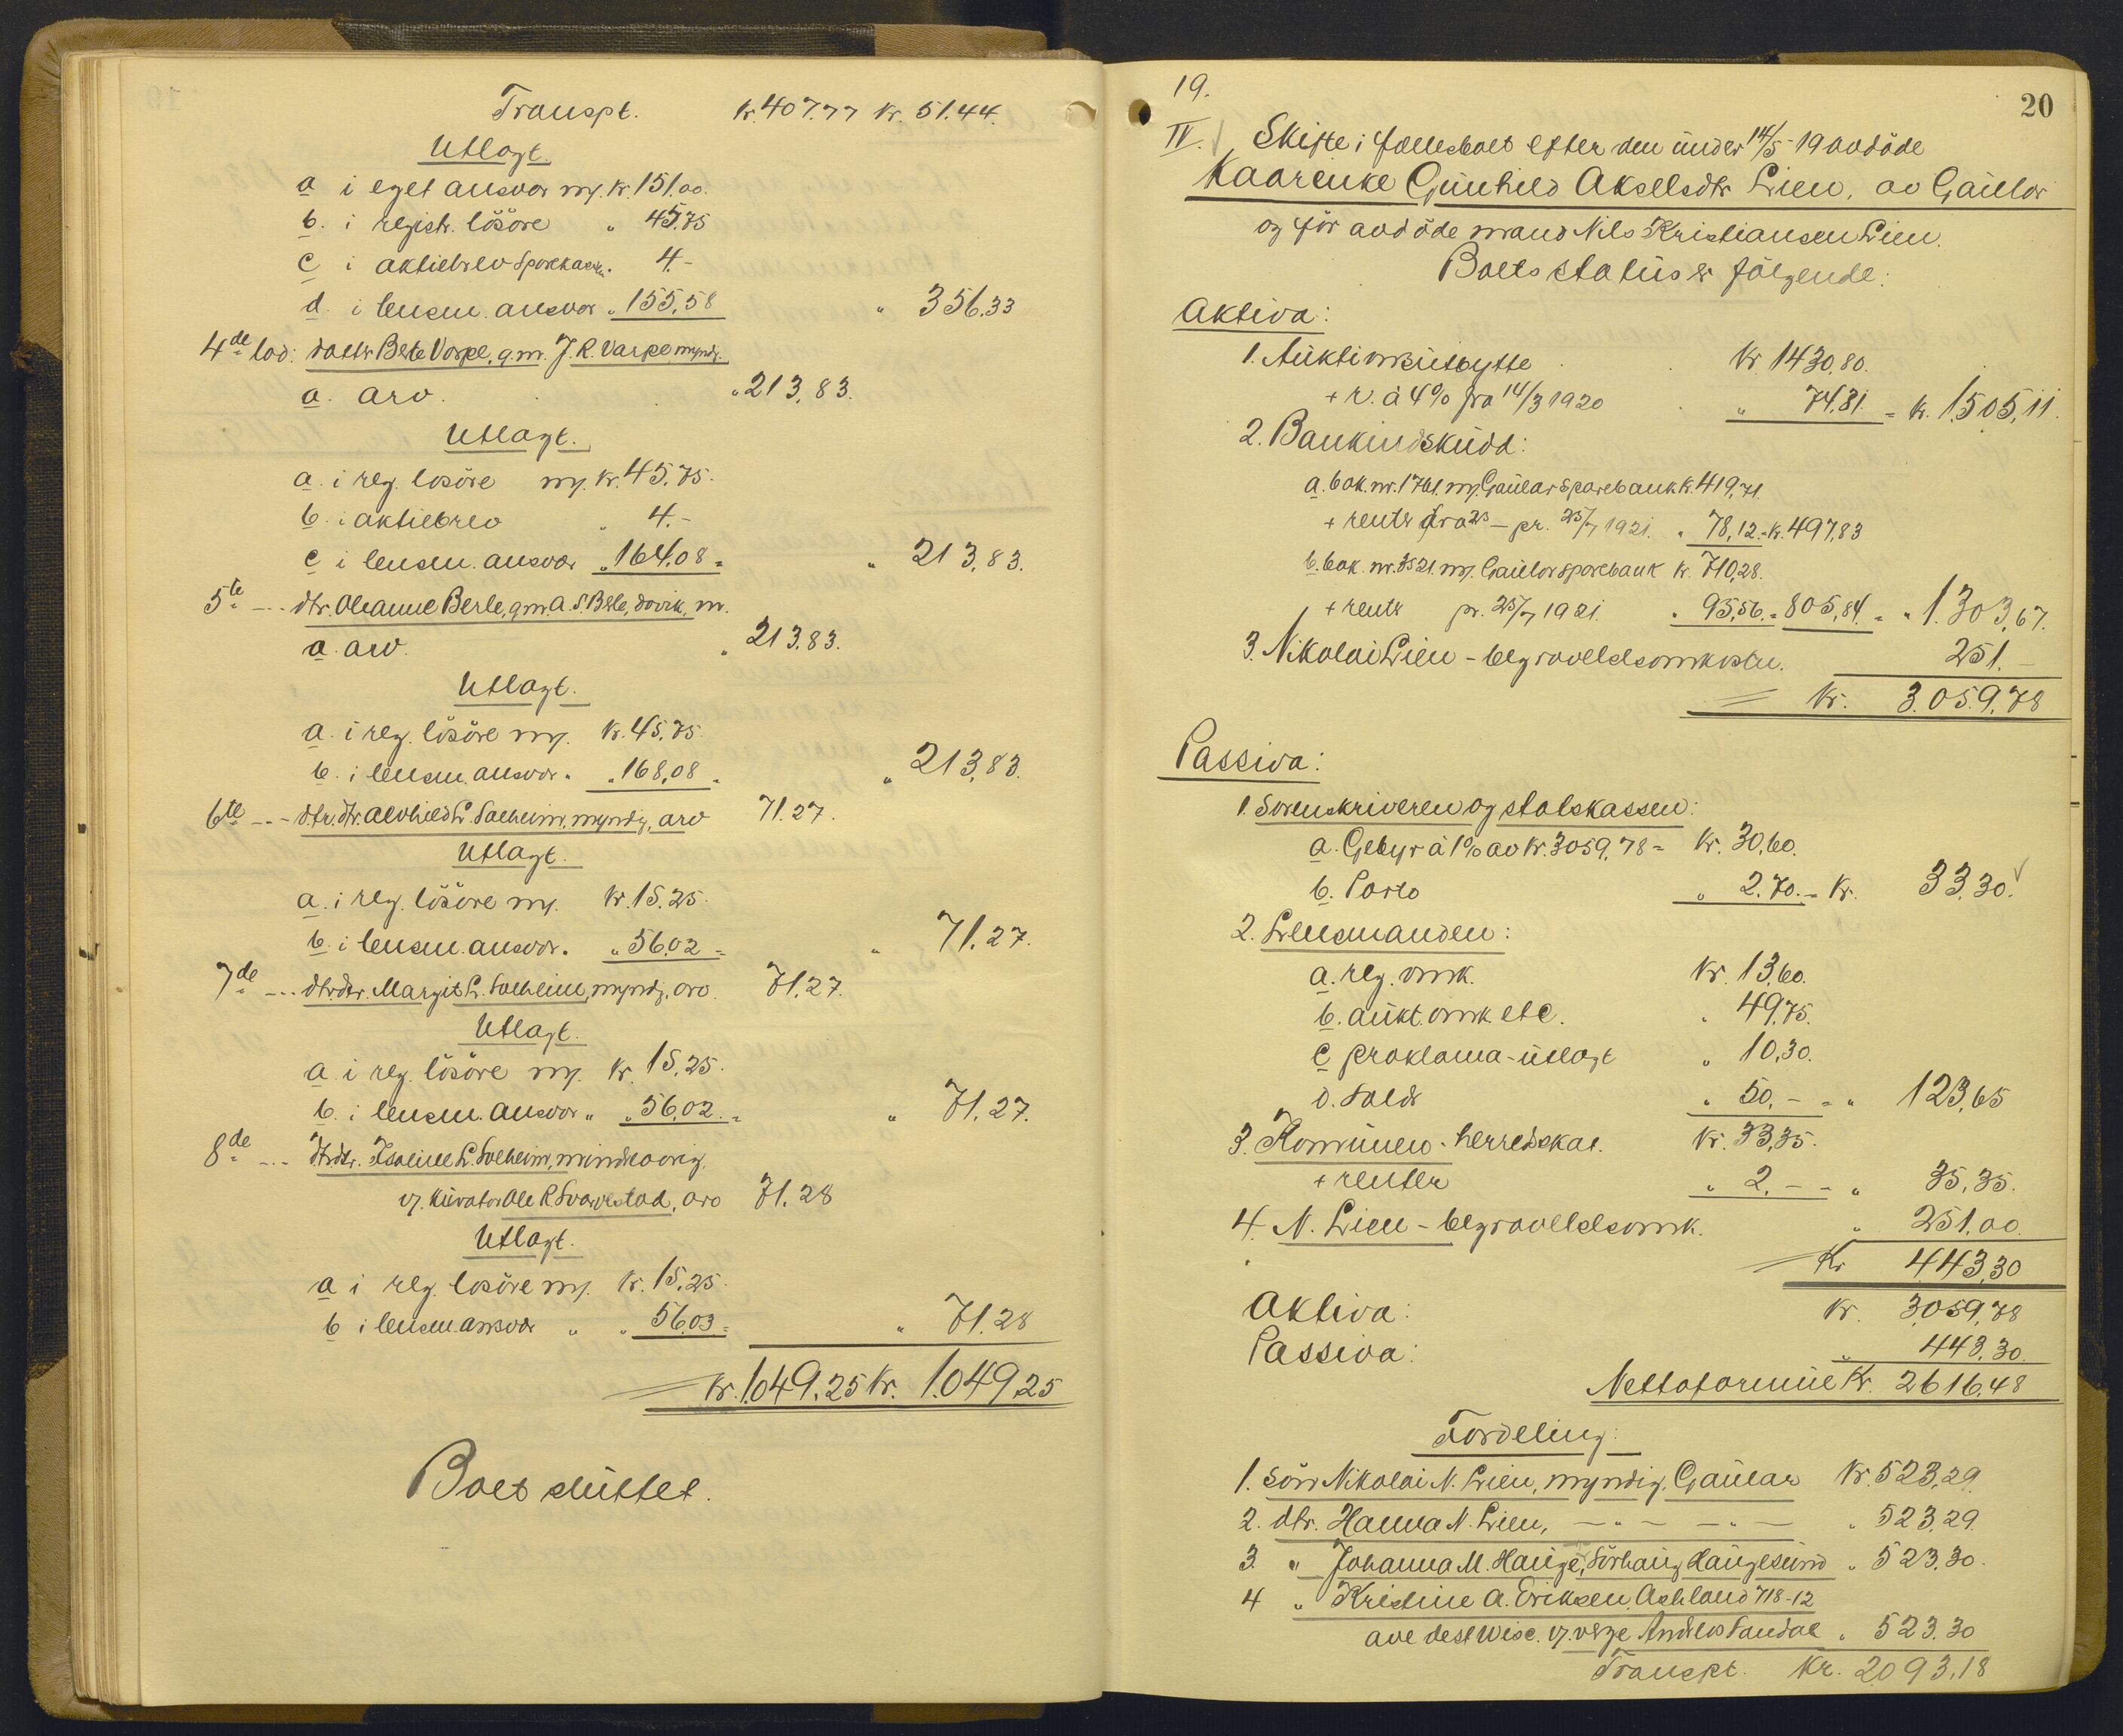 Transpt. kr. 407.77 kr. 51.44.
Utlagt.
a i eget ansvar m/. kr. 151.00.
b. i registr. lösöre " 45.75
c i aktiebrev Sparekassen. 4.-
d. i lensm. ansvar " 155,58 " 356.33
4de lod: datter Berte Varpe, g.m. J. R. Varpe, myndig.
a. arv. " 213,83.
Utlagt.
a. i reg. losöre m/. kr. 45.75.
b. i aktiebrev " 4.-
c i lensm. ansvar " 164.08 = " 213,83.
5te --- dtr. Oleanne Berle, g.m. A. S. Berle, Davik, m.
a. arv. " 213.83.
Utlagt.
a. i reg. lösöre m/. kr. 45.75.
b. i lensm. ansvar. " 168,08 = " 213,83.
6te --- dtr.dtr. Alvhild L. Solheim, myndig, arv 71.27.
Utlagt.
a. i reg. lösöre m/. kr. 15.25.
b. i lensm. ansvar. " 56.02 = " 71.27.
7de --- dtr.dtr. Margit L. Solheim, myndig, arv. 71.27.
Utlagt.
a. i reg. lösöre m/. kr. 15.25.
b. i lensm. ansvar " " 56,02. = " 71.27.
8de --- dtrdtr. L. Solheim, mindreaarig.
v/. kurator Ole R. Svarvestad, arv 71.28
Utlagt.
a i reg. losöre m/. kr. 15.25.
b i lensm. ansvar " " 56.03 = " 71.28
= kr. 1.049.25 kr. 1.049.25
Boet sluttet.
19.
20
IV. Skifte i fællesboet efter den under 14/5-19 avdöde
Kaarenke Gunhild Akselsdtr Lien, av Gaular
og för avdöde mand Nils Kristiansen Lien.
Boets status er fölgende:
Aktiva:
1. Auktionsutbytte kr. 1430,80.
+ r. à 4% fra 14/3 1920 " 74.31. = kr. 1.505,11.
2. Bankindskudd:
a. bok. nr. 1761. m/. Gaular Sparebank kr. 419,71.
+ renter fra 23 - pr. 25/7 1921. " 78,12. = kr. 497,83
b. bok. nr. 3521. m/. Gaular Sparebank kr. 710,28.
+ renter pr. 25/7 1921. " 95,56. = 805,84. = " 1.303,67.
3. Nikolai Lien - begravelsesomkostn. 251.-
= kr. 3.059,78
Passiva:
1. Sorenskriveren og statskassen:
a. Gebyr à 1% av kr. 3059,78 = kr. 30,60.
b. Porto " 2.70. = kr. 33.30.
2. Lensmanden:
a. reg. omk. kr. 13,60.
b. aukt. omk. etc. " 49,75.
c proklama-utlagt " 10,30.
d. Salær " 50,- = " 123,65
3. Kommunen - herredskat. kr. 33,35.
+ renter " 2.- - " 35,35.
4. N. Lien - begravelsesomk. " 251.00.
= Kr 443,30
Aktiva: kr. 3.059,78
Passiva: " 443,30.
Nettoformue kr. 2616,48
Fordeling:
1. sön Nikolai N. Lien, myndig, Gaular kr. 523,29.
2. dtr. Hanna N. Lien, - " - - " - " 523.29.
3. " Johanna M. Hauge, Sörhaug Haugesund " 523.30.
4 " Kristine A. Eriksen, Ashland 718-12
ave dest Wisc. v/. verge Andreas Sandal " 523.30
Transpt. kr. 2093,18